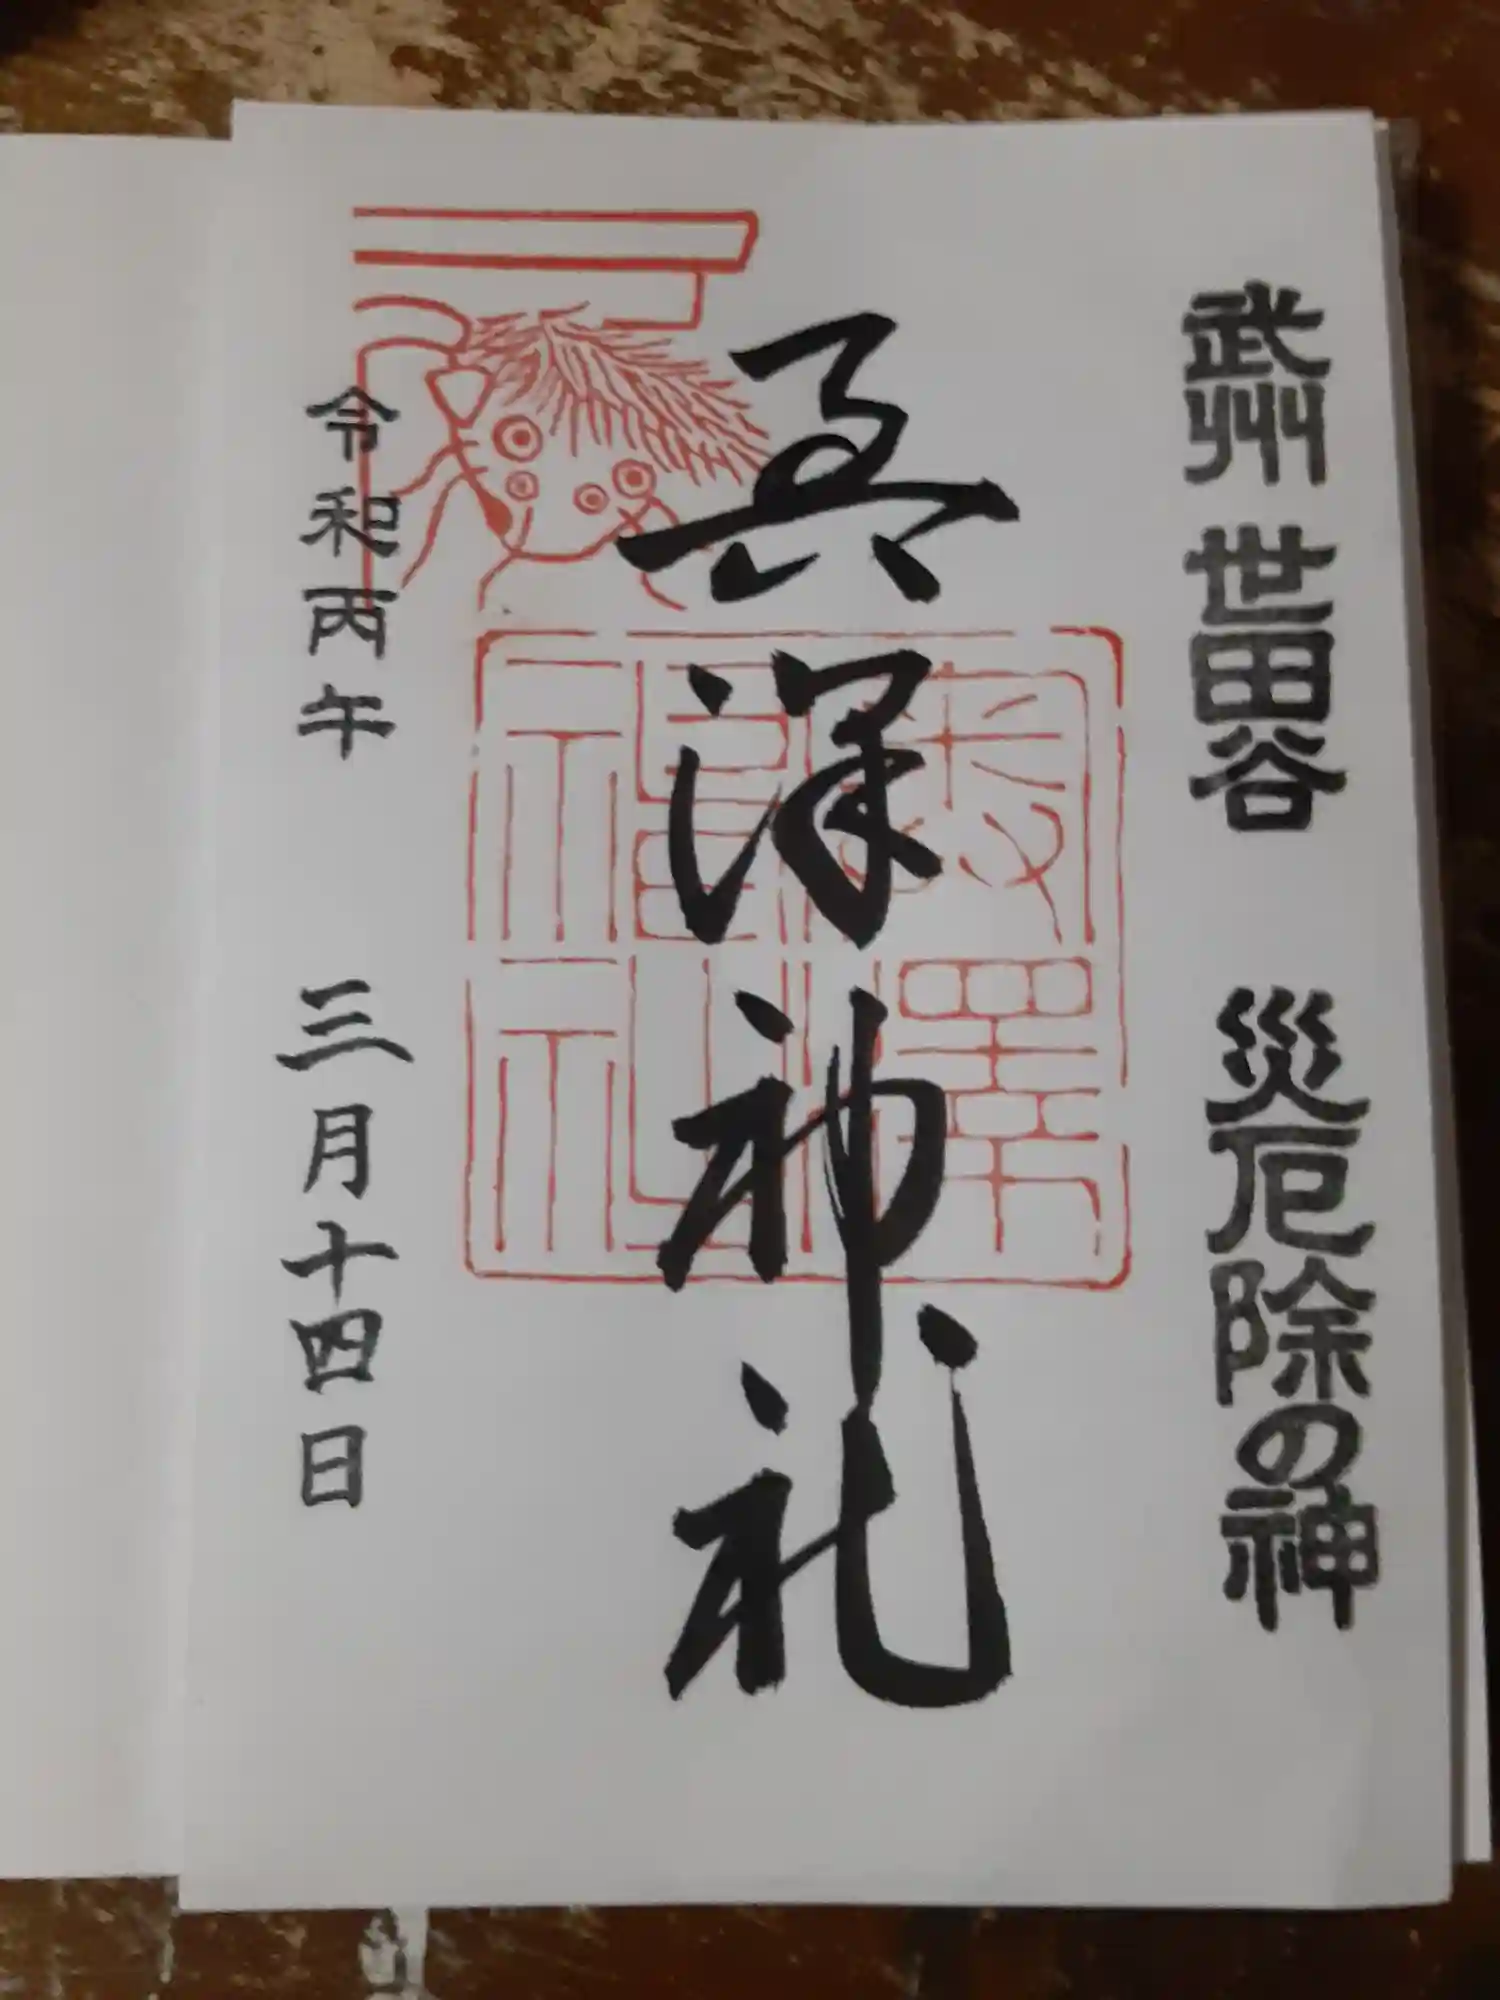 武州 世田谷 災厄除の神
奥澤神社
奥澤
神社
令和丙午 三月十四日